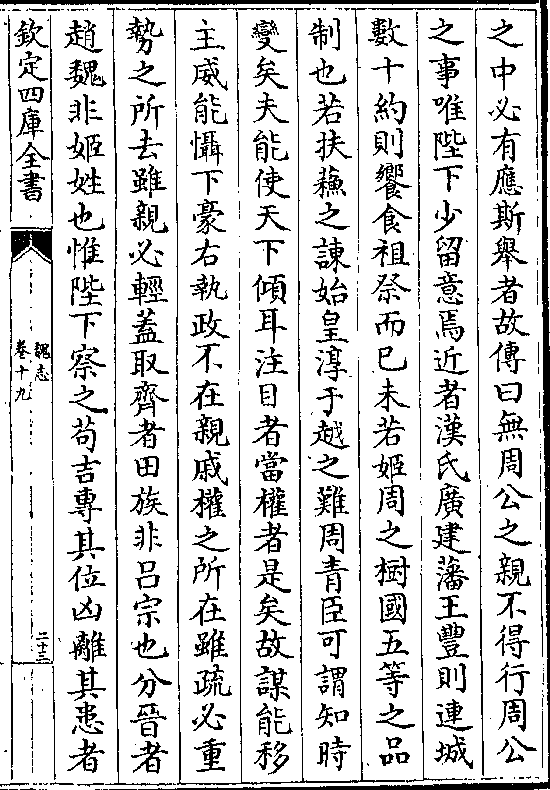 之中必有應斯舉者故傳曰無周公之親不得行周公
之事唯陛下少留意焉近者漢氏廣建藩王豐則連城
數十約則饗食祖祭而已未若姬周之樹國五等之品
制也若扶蘇之諫始皇淳于越之難周青臣可謂知時
變矣夫能使天下傾耳注目者當權者是矣故謀能移
主威能懾下豪右執政不在親戚權之所在雖疏必重
勢之所去雖親必輕蓋取齊者田族非吕宗也分晉者
趙魏非姬姓也惟陛下察之苟吉專其位凶離其患者
欽定四庫全書
魏志
卷十九
二十三